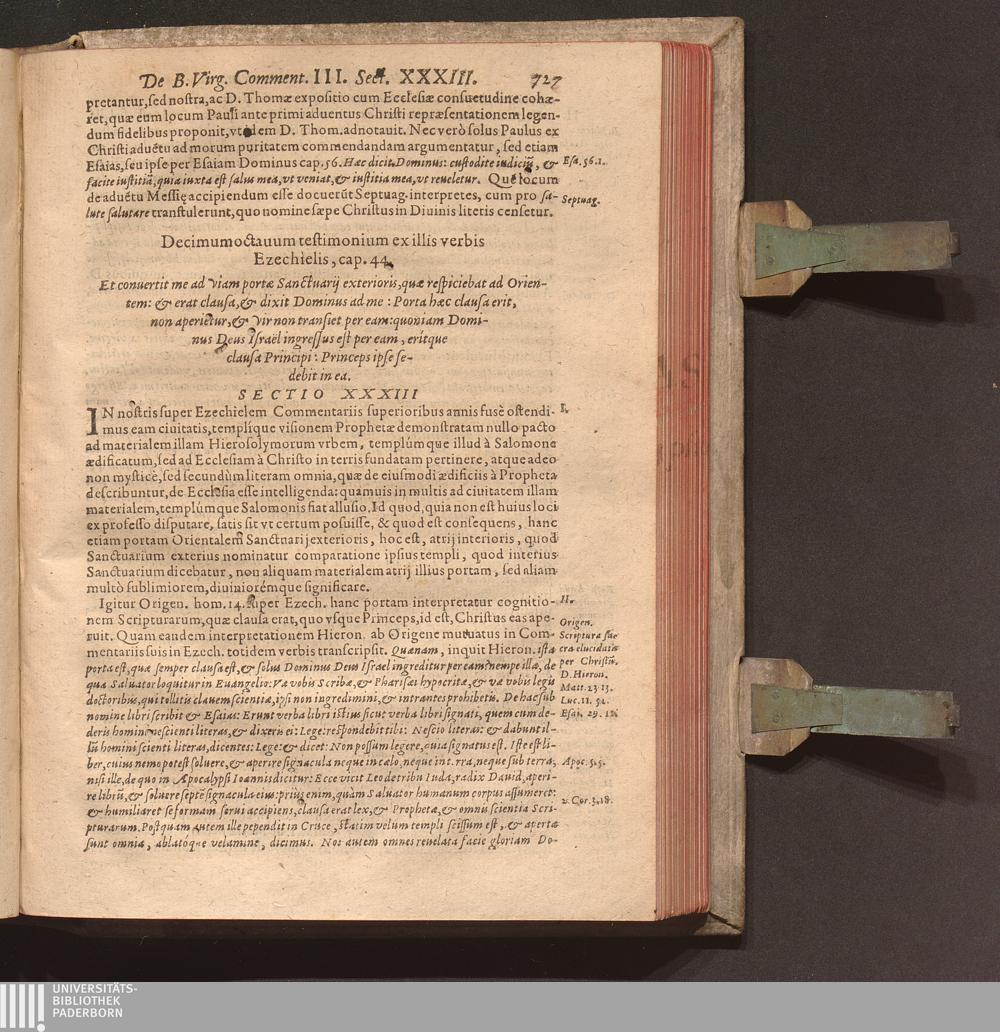 De B. Virg. Comment. III. Sect. XXXIII. 727
pretantur, sed nostra, ac D. Thomæ expositio cum Ecclesiæ consuetudine cohæ-
ret, quæ eum locum Pauli ante primi aduentus Christi repræsentationem legen-
dum fidelibus proponit, vt idem D. Thom. adnotauit. Nec verò solus Paulus ex
Christi aduẽtu ad morum puritatem commendandam argumentatur, sed etiam
Esaias, seu ipse per Esaiam Dominus cap. 56. Hæc dicit Dominus: custodite iudiciũ, &
Esa. 56. 1.
facite iustitiã, quia iuxta est salus mea, vt veniat, & iustitia mea, vt reueletur. Quẽ locum
de aduẽtu Messię accipiendum esse docuerũt Septuag. interpretes, cum pro sa-
Septuag.
lute salutare transtulerunt, quo nomine sæpe Christus in Diuinis literis censetur.
Decimumoctauum testimonium ex illis verbis
Ezechielis, cap. 44.
Et conuertit me ad viam portæ Sanctuarij exterioris, quæ respiciebat ad Orien-
tem: & erat clausa, & dixit Dominus ad me : Porta hæc clausa erit,
non aperietur, & vir non transiet per eam: quoniam Domi-
nus Deus Israël ingressus est per eam, erítque
clausa Principi : Princeps ipse se-
debit in ea.
SECTIO XXXIII
IN nostris super Ezechielem Commentariis superioribus annis fusè ostendi-
I.
mus eam ciuitatis, templíque visionem Prophetæ demonstratam nullo pacto
ad materialem illam Hierosolymorum vrbem, templúmque illud à Salomone
ædificatum, sed ad Ecclesiam à Christo in terris fundatam pertinere, atque adeo
non mysticè, sed secundùm literam omnia, quæ de eiusmodi ædificiis à Propheta
describuntur, de Ecclesia esse intelligenda: quamuis in multis ad ciuitatem illam
materialem, templúmque Salomonis fiat allusio. Id quod, quia non est huius loci
ex professo disputare, satis sit vt certum posuisse, & quod est consequens, hanc
etiam portam Orientalem Sanctuarij exterioris, hoc est, atrij interioris, quod
Sanctuarium exterius nominatur comparatione ipsius templi, quod interius
Sanctuarium dicebatur, non aliquam materialem atrij illius portam, sed aliam
multò sublimiorem, diuiniorémque significare.
Igitur Origen. hom. 14. super Ezech. hanc portam interpretatur cognitio-
II.
nem Scripturarum, quæ clausa erat, quo vsque Princeps, id est, Christus eas ape-
Origen.
ruit. Quam eandem interpretationem Hieron. ab Origene mutuatus in Com-
Scriptura sa-
mentariis suis in Ezech. totidem verbis transcripsit. Quænam, inquit Hieron. ista
cra elucidata
porta est, quæ semper clausa est, & solus Dominus Deus Israel ingreditur per eam? nempe illa, de
per Christũ.
D. Hieron.
qua Saluator loquitur in Euangelio: Væ vobis Scribæ, & Pharisæi hypocritæ, & væ vobis legis
Matt. 23. 13.
doctoribus, qui tollitis clauem scientiæ, ipsi non ingredimini, & intrantes prohibetis. De hac sub
Luc. 11. 52.
nomine libri scribit & Esaias: Erunt verba libri istius sicut verba libri signati, quem cum de-
Esai. 29. 11.
deris homini nescienti literas, & dixeris ei: Lege: respondebit tibi: Nescio literas: & dabunt il-
lũ homini scienti literas, dicentes: Lege: & dicet: Non possum legere, quia signatus est. Iste est li-
ber, cuius nemo potest soluere, & aperire signacula neque in cælo, neque in terra, neque sub terra,
Apoc. 5. 5.
nisi ille, de quo in Apocalypsi Ioannis dicitur: Ecce vicit Leo de tribu Iuda, radix Dauid, aperi-
re librũ, & soluere septẽ signacula eius: prius enim, quàm Saluator humanum corpus assumeret:
& humiliaret se formam serui accipiens, clausa erat lex, & Prophetæ, & omnis scientia Scri-
2. Cor. 3. 18.
pturarum. Postquam autem ille pependit in Cruce, statim velum templi scissum est, & aperta
sunt omnia, ablatoque velamine, dicimus. Nos autem omnes reuelata facie gloriam Do-
UNIVERSITÄTS-
BIBLIOTHEK
PADERBORN